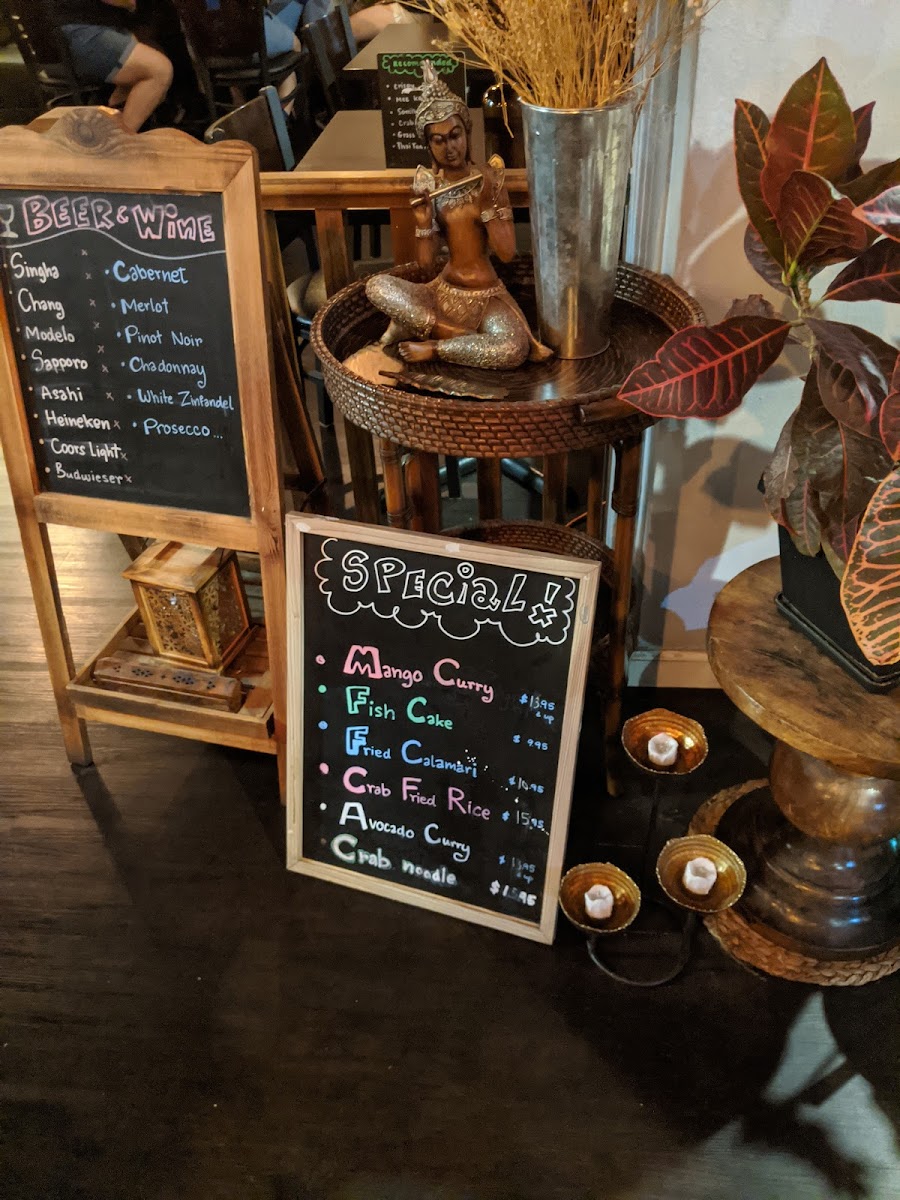 BEER & WINE
Singha
Chang
Modelo
Sapporo
Asahi
Heineken
Coors Light
Budwieser
Cabernet
Merlot
Pinot Noir
Chadonnay
White Zinfandel
Prosecco...
Recommended
SPECiAL!
Mango Curry $13.95 & up
Fish Cake $9.95
Fried Calamari $10.95
Crab Fried Rice $15.95
Avocado Curry $13.95 & up
Crab noodle